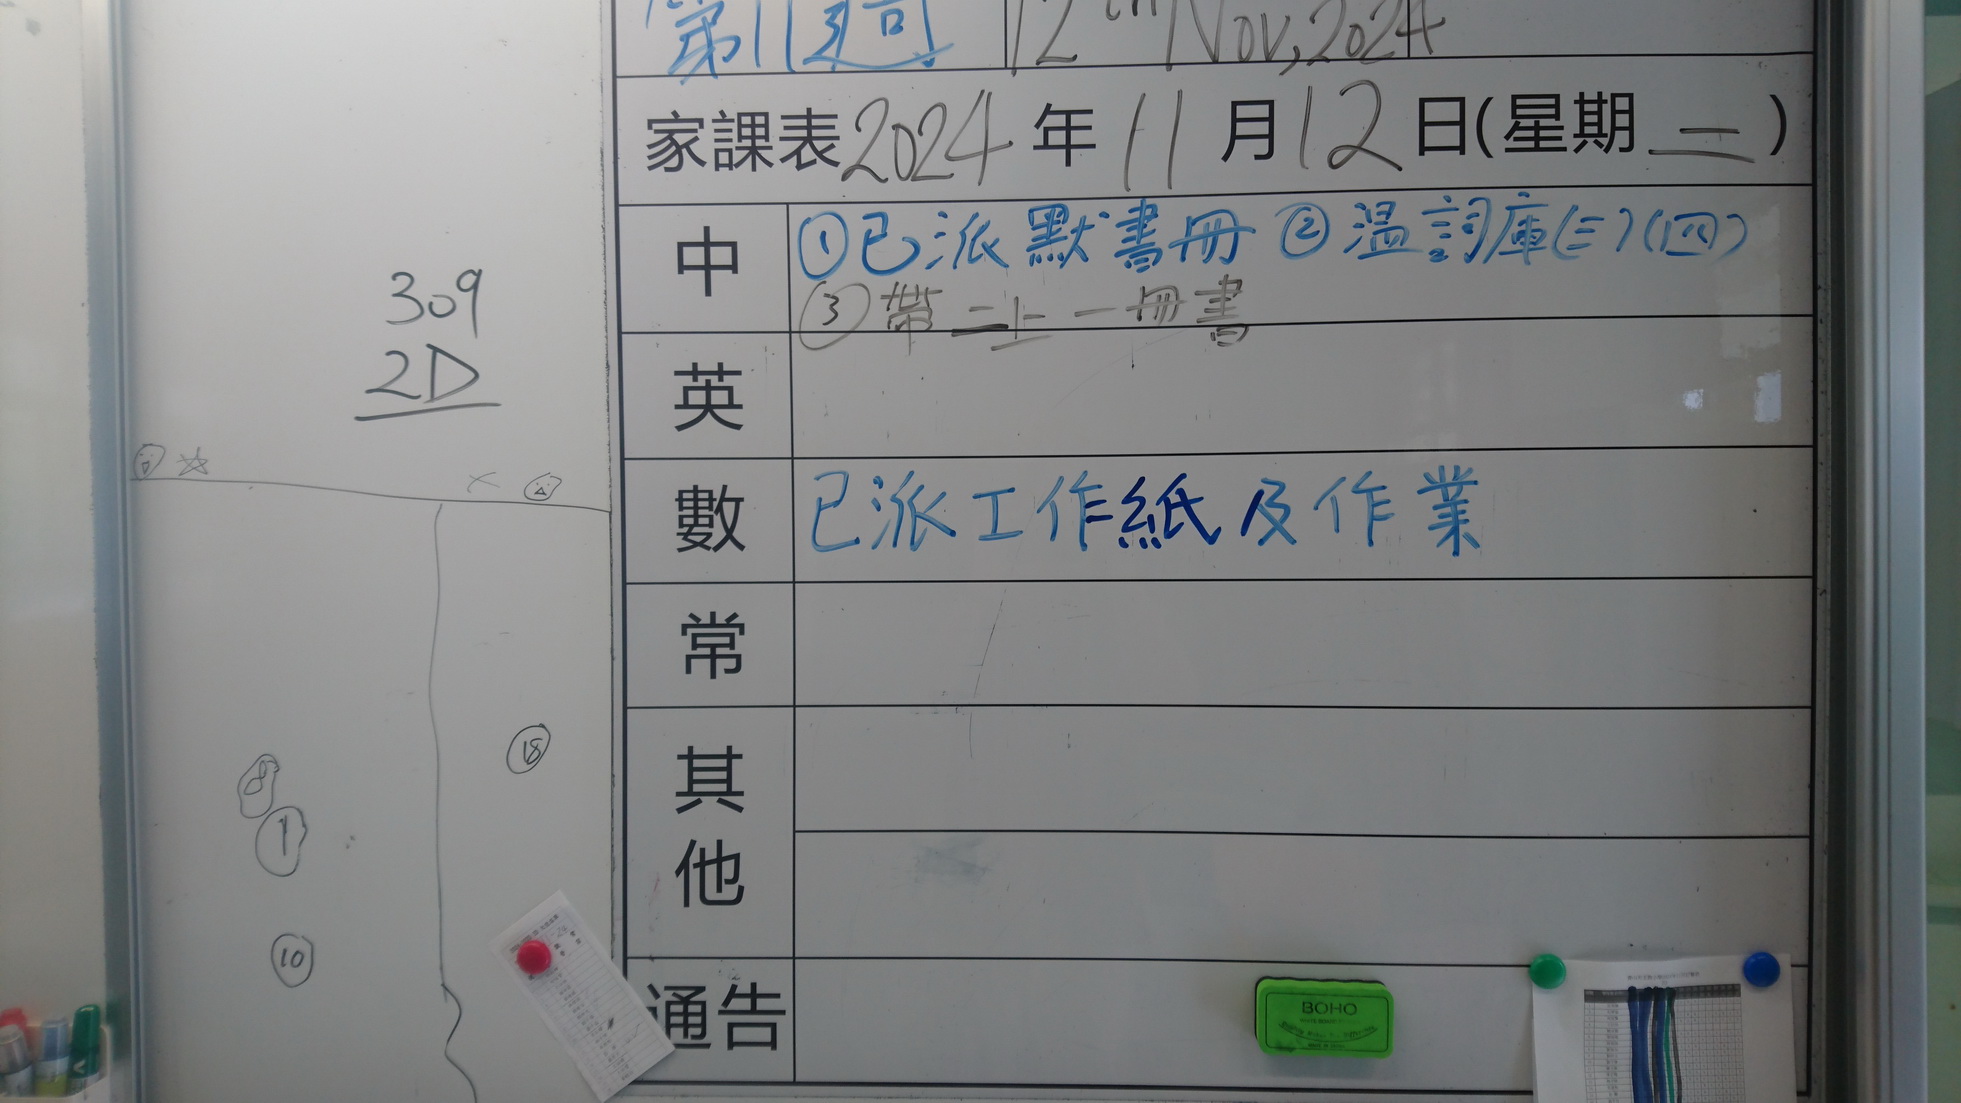 第11週 12th Nov, 2024
家課表 2024 年 11 月 12 日(星期 二 )
中 ①已派默書冊 ②溫詞庫(三)(四)
③帶二上一冊書
英
數 已派工作紙及作業
常
其他
通告
309
2D
18
8
1
10
BOHO